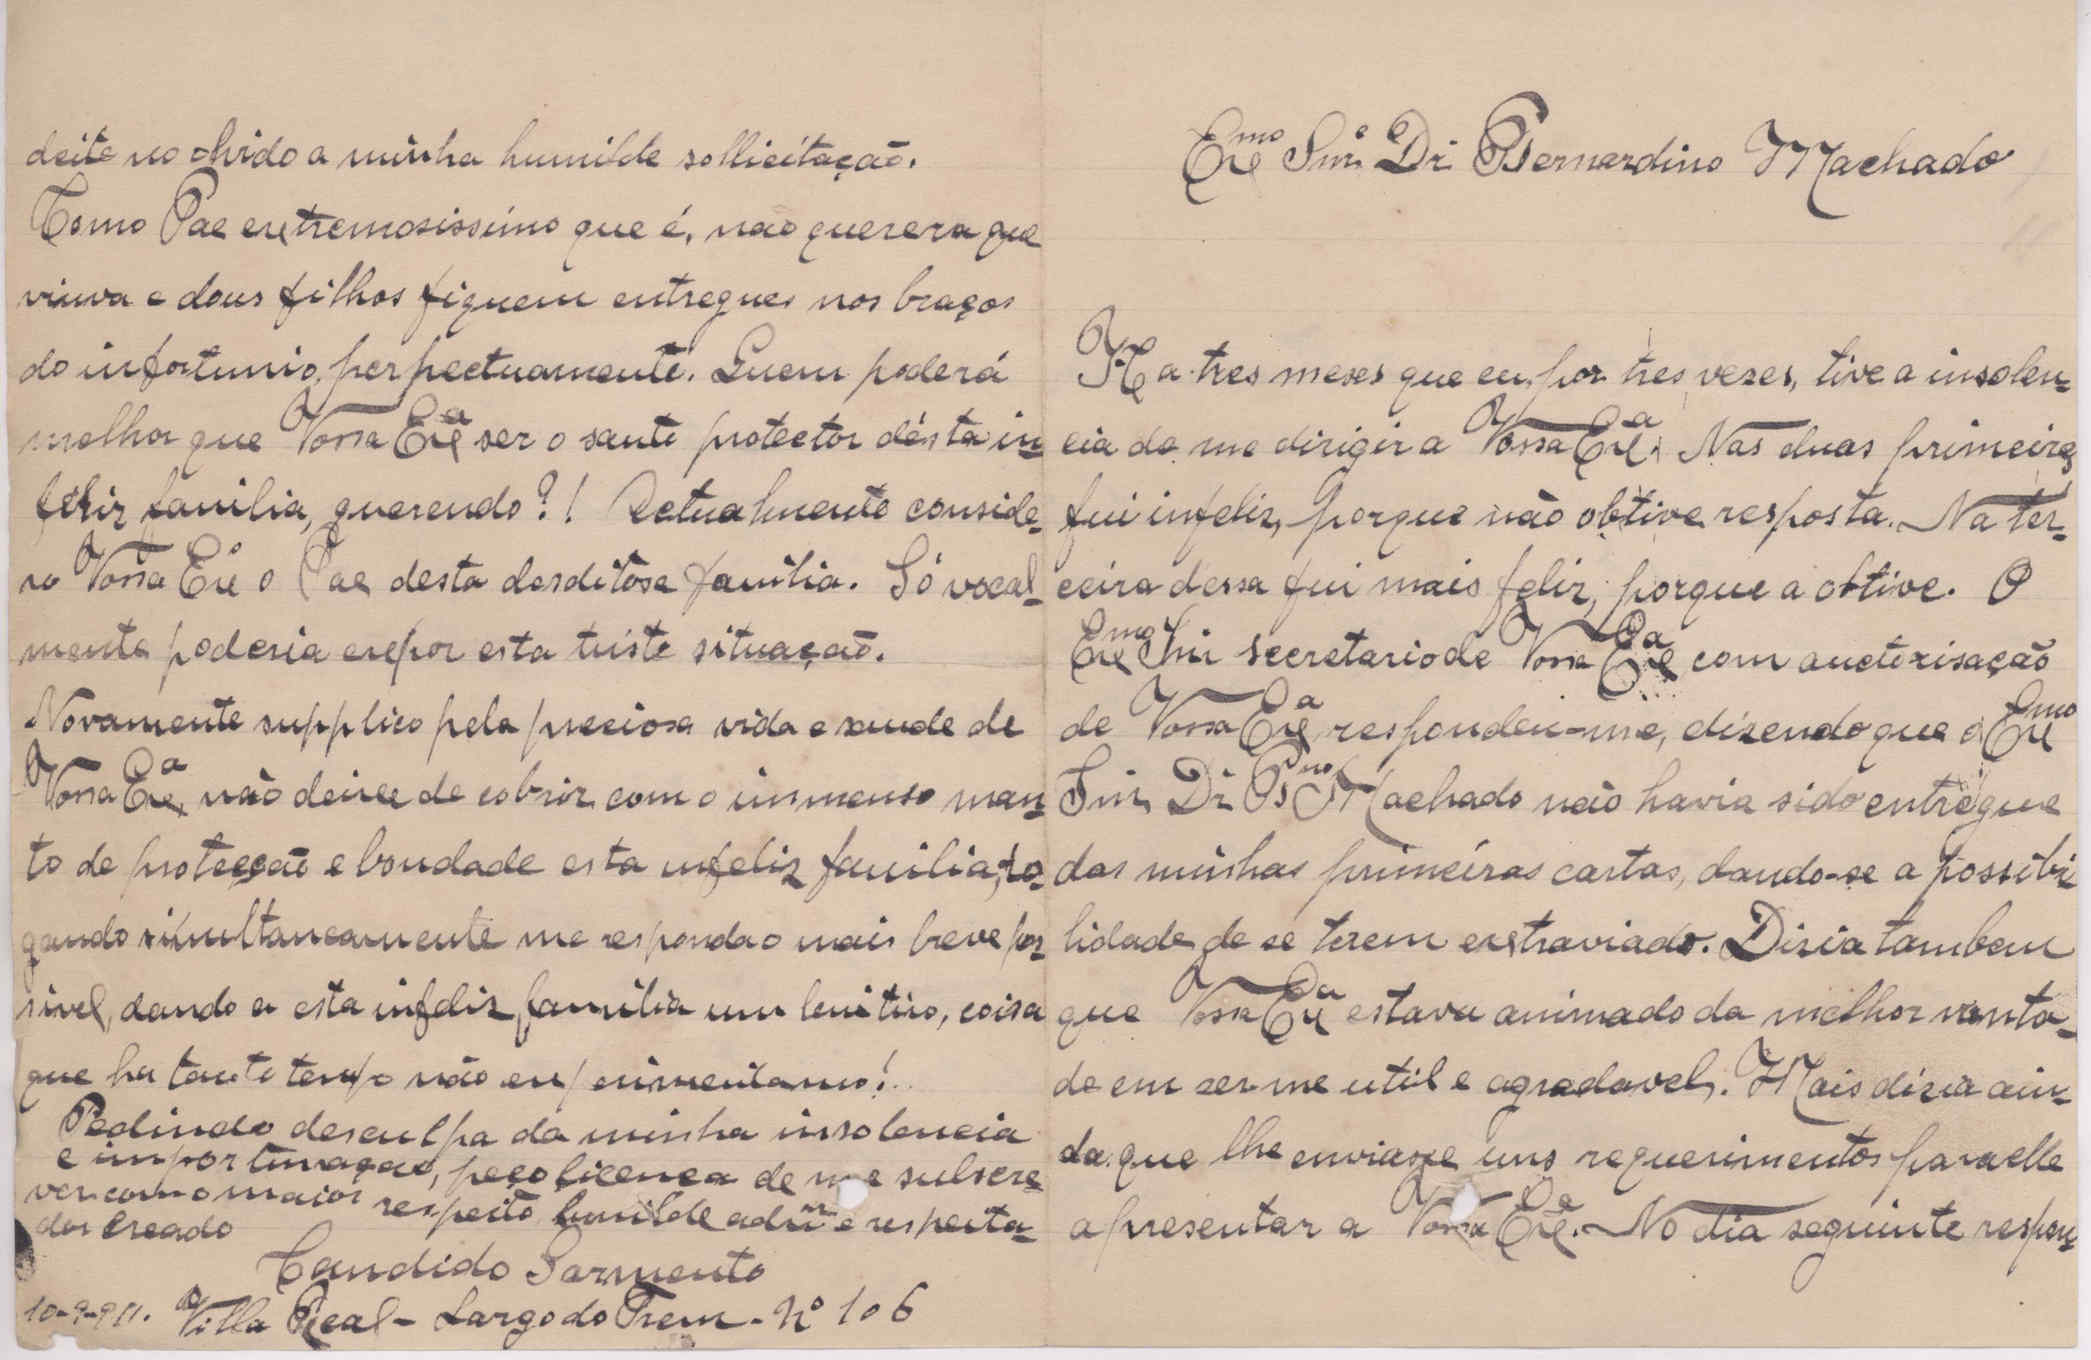 Exmo Snr. Dr. Bernardino Machado
Ha tres meses que eu, por tres vezes, tive a insolen-
cia de me dirigir a Vossa Exa. Nas duas primeiras
fui infeliz, porque não obtive resposta. Na ter-
ceira dessa fui mais feliz, porque a obtive. O
Exmo Snr secretario de Vossa Exa com auctorisação
de Vossa Exa, respondeu-me, dizendo que o Exmo
Snr. Dr. Bno Machado não havia sido entregue
das minhas primeiras cartas, dando-se a possibi
lidade de se terem extraviado. Dizia tambem
que Vossa Exa estava animado da melhor vonta-
de em ser-me util e agradavel. Mais dizia ain-
da que lhe enviasse uns requerimentos para elle
apresentar a Vossa Exa. No dia seguinte respon-
deite no olvido a minha humilde sollicitação.
Como Pae extremosissimo que é, não querera que
viuva e dous filhos fiquem entregues nos braços
do infortunio, perpectuamente. Quem poderá
melhor que Vossa Exa ser o santo protector désta in-
feliz familia, querendo?! Actualmente conside-
ro Vossa Exo o Pae desta desditosa familia. Só vocal-
mente poderia expor esta triste situação.
Novamente supplico pela preciosa vida e saude de
Vossa Exa, não deixe de cobrir com o immenso man-
to de protecção e bondade esta infeliz familia, ro-
gando simultaneamente me responda o mais breve pos-
sivel, dando a esta infeliz familia um lenitivo, coisa
que ha tanto tempo não experimentamos!
Pedindo desculpa da minha insolencia
e importunação, peço licença de me subscre-
ver com o maior respeito humilde admr e respeita-
dor creado
Candido Sarmento
10-9-911. Villa Real - Largo do Trem - No 106